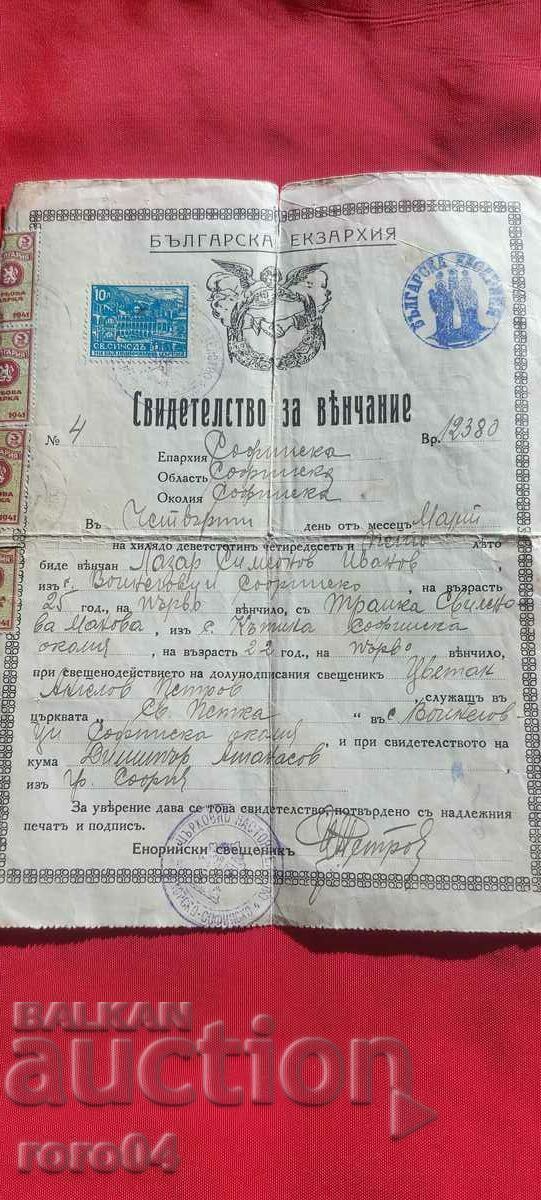 БЪЛГАРСКА ЕКЗАРХИЯ
БЪЛГАРСКА ЕКЗАРХИЯ
10 л
СВ. СИНОДЪ
БЪЛГАРИЯ
1941
1941
1941
Свидетелство за вѣнчание
№ 4 Вр. 12380
Епархия Софийска
Область Софийска
Околия Софийска
Въ Четвърти день отъ месецъ Мартъ
на хилядо деветстотинъ четиредесеть и лѣто
биде вѣнчан Лазар Симеонов Иванов,
изъ с. Войнеговци Софийско, на възрасть
25 год., на първо вѣнчило, съ Трайка
Манова, изъ с. Кътина Софийска
околия, на възрасть 22 год., на първо вѣнчило,
при свещенодействието на долуподписания свещеникъ Цветан
Ангелов Петров, служащъ въ
църквата „Св. Петка“ въ с. Войнегов-
ци Софийска околия, и при свидетелството на
кума Димитър Атанасов
изъ гр. София
За увѣрение дава се това свидетелство, потвърдено съ надлежния
печатъ и подписъ.
Енорийски свещеникъ Петров
BALKAN
auction
roro04